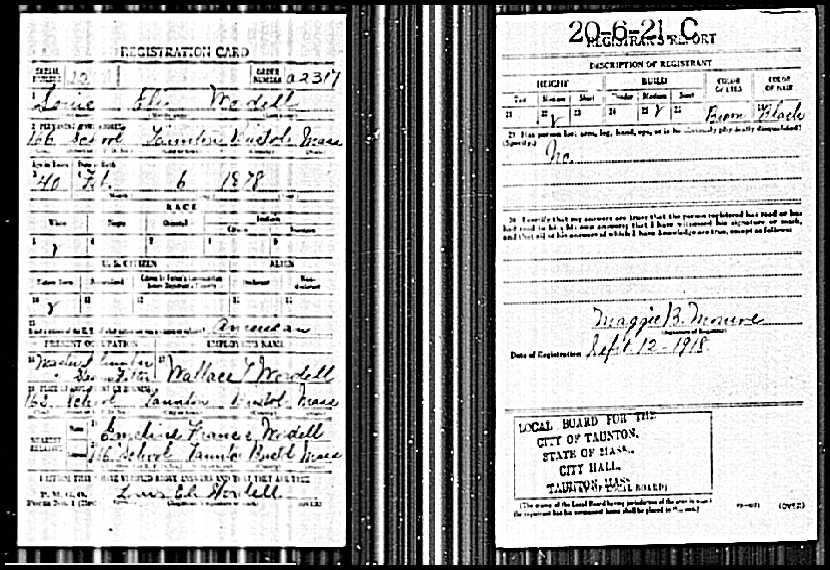 REGISTRATION CARD
SERIAL NUMBER 10
ORDER NUMBER
1 Louis Eli Wordell
2 PERMANENT HOME ADDRESS:
166 School Taunton Bristol Mass
Age in Years Date of Birth
40 Feb. 6 1878
RACE
White Negro Oriental Indian
Citizen
5 6 7 8 9
U. S. CITIZEN ALIEN
Native Born Naturalized
10 11 12 13 14
15 American
PRESENT OCCUPATION EMPLOYER'S NAME
16 Plumber 17 Wallace T Wordell
162 School Taunton Bristol Mass
NEAREST RELATIVE
Name
Emeline Wordell
166 School Taunton Bristol Mass
I AFFIRM THAT I HAVE VERIFIED ABOVE ANSWERS AND THAT THEY ARE TRUE
Louis Eli Wordell
(OVER)
20-6-21 C
REGISTRAR'S REPORT
DESCRIPTION OF REGISTRANT
HEIGHT BUILD COLOR OF EYES COLOR OF HAIR
Tall Medium Short Slender Medium Stout
21 22 23 24 25 26 Brown Black
29 Has person lost arm, leg, hand, eye, or is he obviously physically disqualified?
(Specify.)
No.
30 I certify that my answers are true; that the person registered has read or has
had read to him his own answers; that I have witnessed his signature or mark,
and that all of his answers of which I have knowledge are true, except as follows:
Maggie B.
Date of Registration Sept 12-1918
LOCAL BOARD FOR THE
CITY OF TAUNTON,
STATE OF MASS.,
CITY HALL,
TAUNTON, MASS.
(STAMP OF LOCAL BOARD)
(The stamp of the Local Board having jurisdiction of the area in which
the registrant has his permanent home shall be placed in this box.)
(OVER)